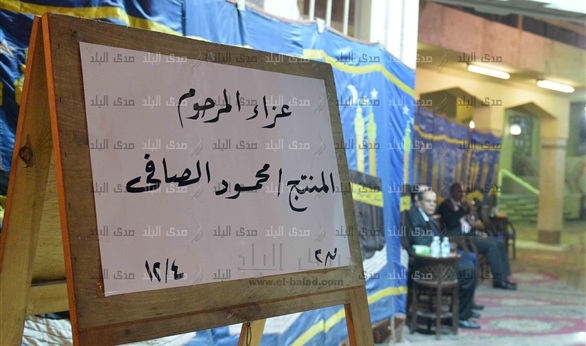 عزاء المرحوم
المنتج / محمود الصافى
١٢/٤
صدى البلد
www.el-balad.com